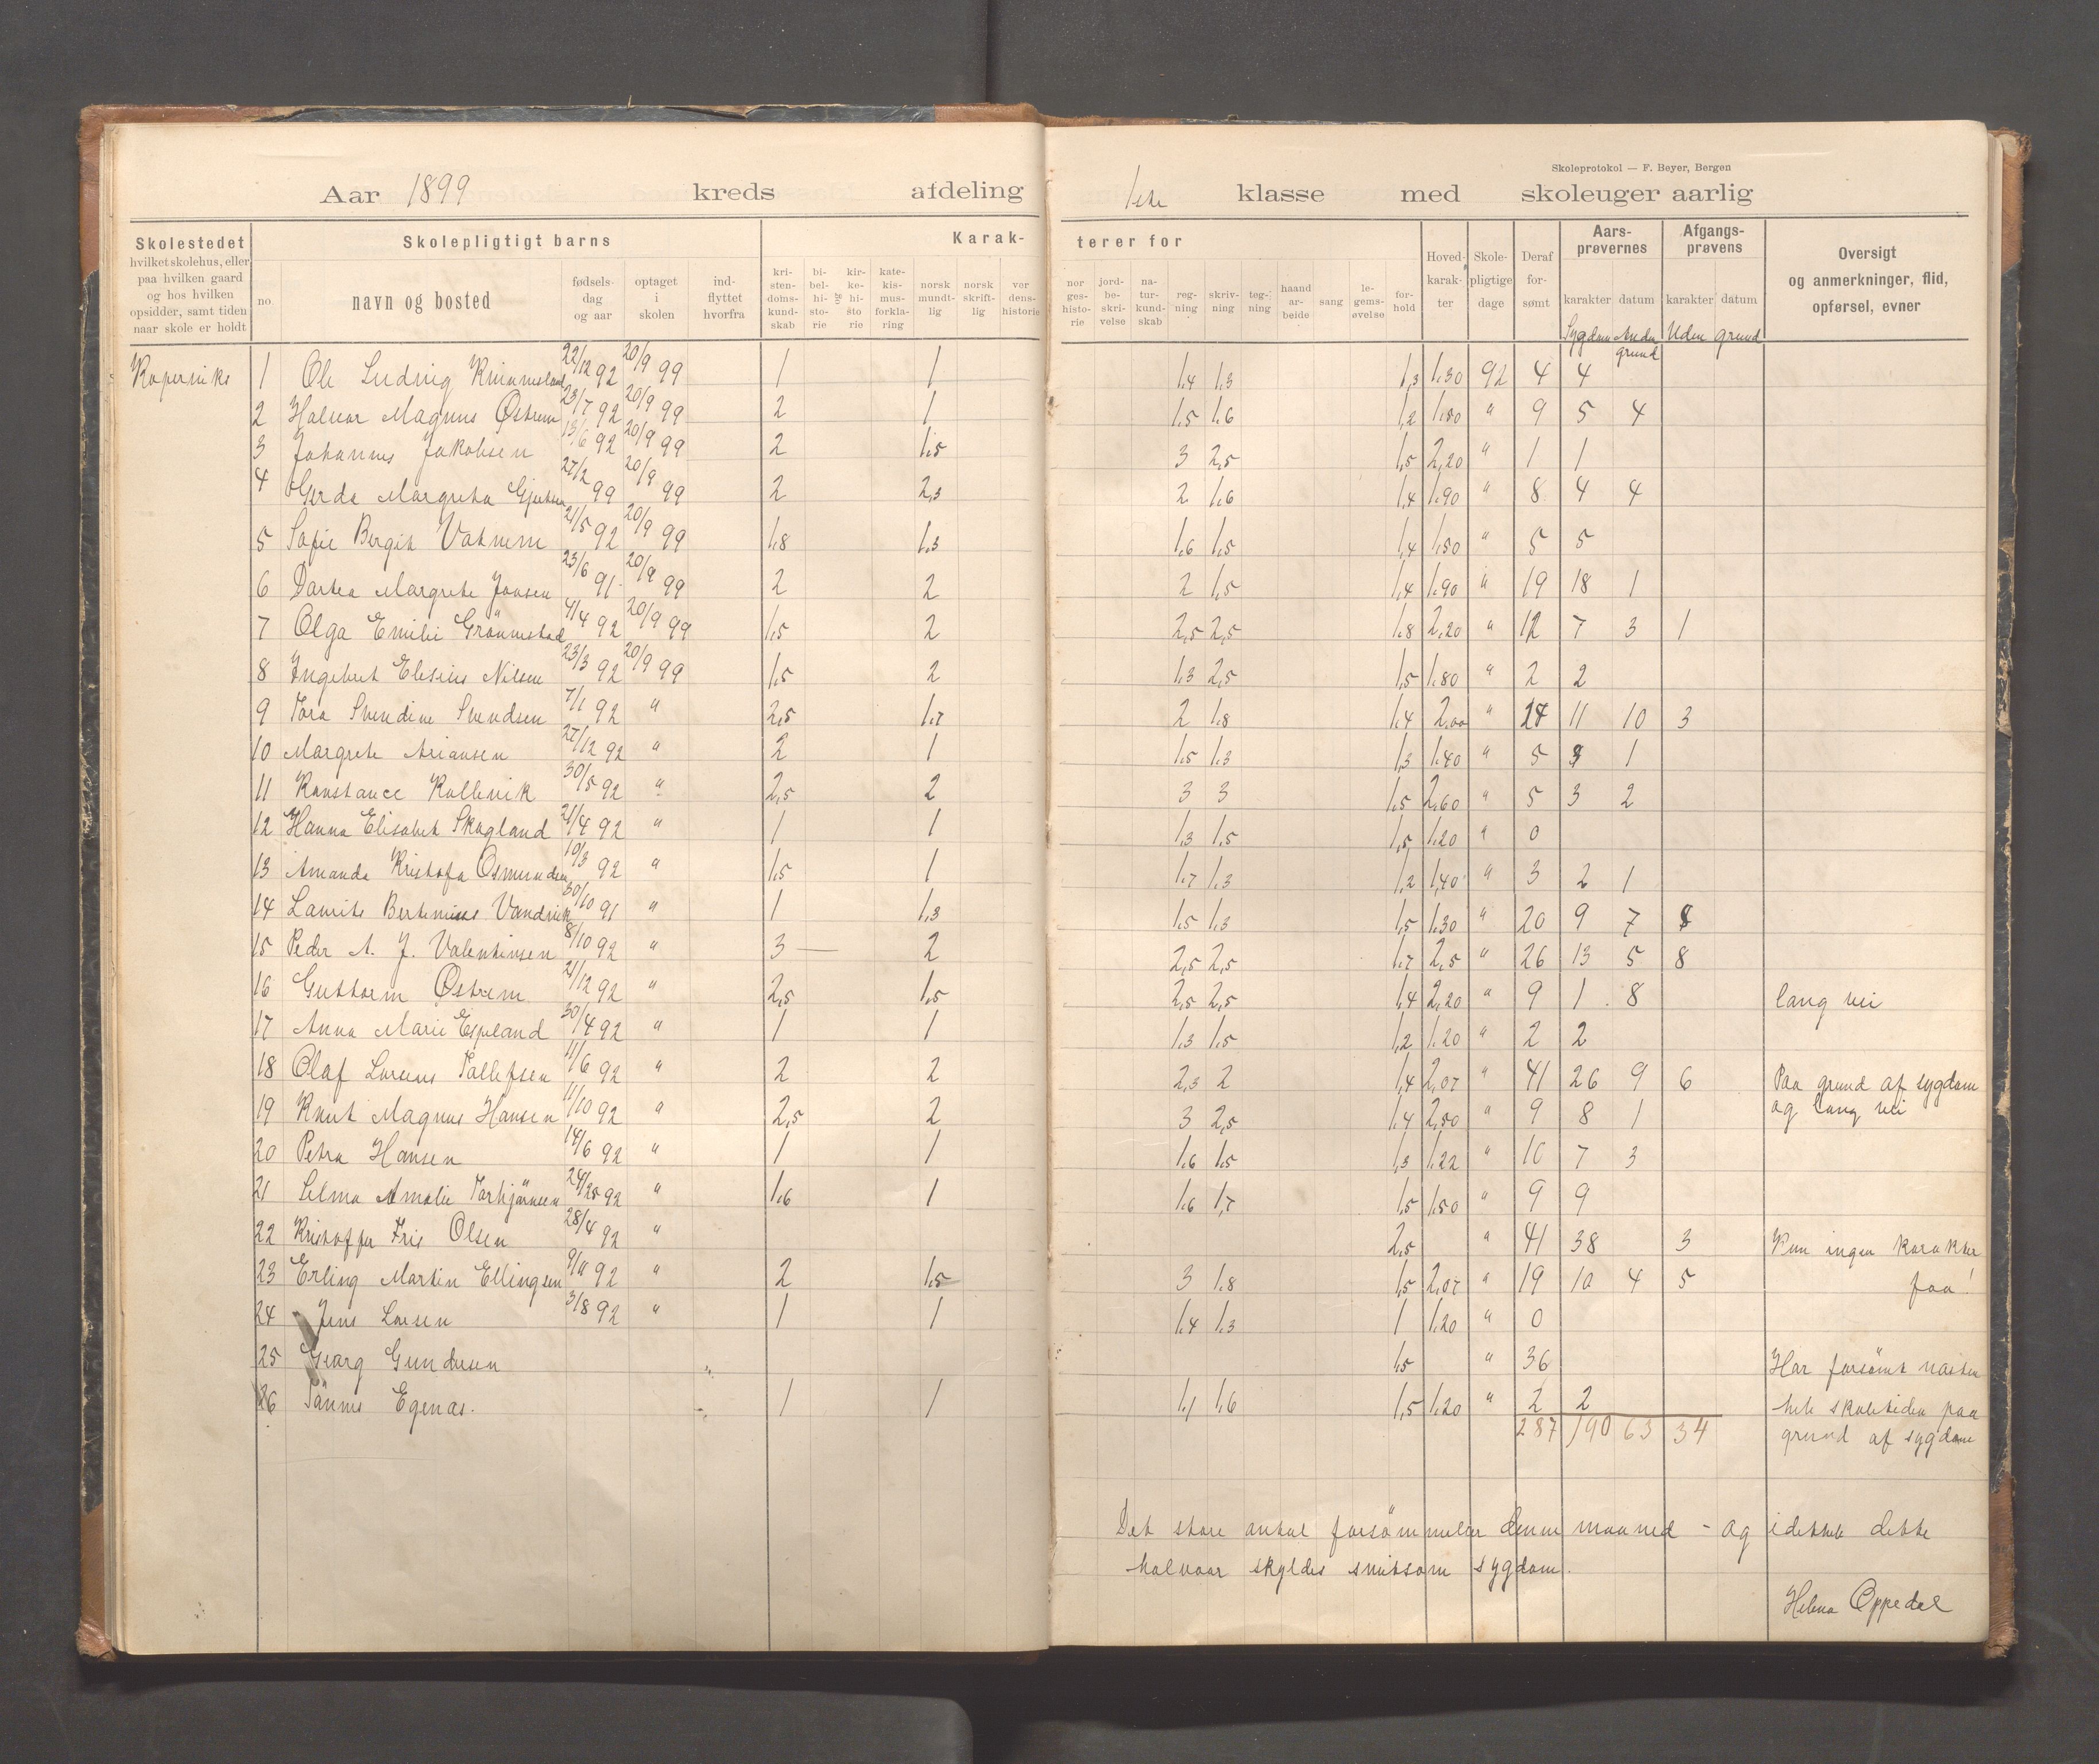 Skoleprotokol — F. Beyer, Bergen
Aar 1899 kreds afdeling 1ste klasse med skoleuger aarlig
Skolestedet hvilket skolehus, eller paa hvilken gaard og hos hvilken opsidder, samt tiden naar skole er holdt
Skolepligtigt barns
no. navn og bosted fødselsdag og aar optaget i skolen indflyttet hvorfra
Karakterer for
kristendomskundskab bibelhistorie og kirkehistorie katekismusforklaring norsk mundtlig norsk skriftlig verdenshistorie norgeshistorie jordbeskrivelse naturkundskab regning skrivning tegning haandarbeide sang legemsøvelse forhold
Hovedkarakter Skolepligtige dage Deraf forsømt
Aarsprøvernes karakter datum
Afgangsprøvens karakter datum
Oversigt og anmerkninger, flid, opførsel, evner
Sygdom Anden grund Uden grund
1 Ole Ludvig 22/12 92 20/9 99 1 1 1,4 1,3 1,3 1.30 92 4 4
2 Halvor Magnus Østrem 23/7 92 20/9 99 2 1 1,5 1,6 1,2 1.80 " 9 5 4
3 Johannes Jakobsen 13/6 92 20/9 99 2 1,5 3 2,5 1,5 2,20 " 1 1
4 Gerda Margreta 27/2 99 20/9 99 2 2,3 2 1,6 1,4 1.90 " 8 4 4
5 Sofie Bergit Vatnem 21/5 92 20/9 99 1,8 1,3 1,6 1,5 1,4 1.50 " 5 5
6 Dortea Margrete Jonsen 23/6 91 20/9 99 2 2 2 1,5 1,4 1.90 " 19 18 1
7 Olga Emilie 4/4 92 20/9 99 1,5 2 2,5 2,5 1,8 2,20 " 12 7 3 1
8 Ingebret Elesius Nilsen 23/3 92 20/9 99 1,5 2 1,3 2,5 1,5 1.80 " 2 2
9 Tora Svendine Svendsen 7/1 92 " 2,5 1,7 2 1,8 1,4 2,00 " 24 11 10 3
10 Margrete Ariansen 27/12 92 " 2 1 1,5 1,3 1,3 1.40 " 5 1
11 Konstance Kollevik 30/5 92 " 2,5 2 3 3 1,5 2,60 " 5 3 2
12 Hanna Elisabet Skogland 21/4 92 " 1 1 1,3 1,5 1,5 1.20 " 0
13 Amanda Kristofa Osmundsen 10/3 92 " 1,5 1 1,7 1,3 1,2 1,40 " 3 2 1
14 Laurits Bertinius Vandvik 30/10 91 " 1 1,3 1,5 1,3 1,5 1.30 " 20 9 7
15 Peder A. J. Valentinsen 8/10 92 " 3 — 2 2,5 2,5 1,7 2,5 " 26 13 5 8
16 Guttorm Østrem 21/12 92 " 2,5 1,5 2,5 2,5 1,4 2,20 " 9 1 8 lang vei
17 Anna Marie Espeland 30/4 92 " 1 1 1,3 1,5 1,2 1.20 " 2 2
18 Olaf Lorens Tollefsen 11/6 92 " 2 2 2,3 2 1,4 2,07 " 41 26 9 6 Paa grund af sygdom
19 Knut Magnus Hansen 11/10 92 " 2,5 2 3 2,5 1,4 2,50 " 9 8 1 og lang vei
20 Petra Hansen 14/6 92 " 1 1 1,6 1,5 1,3 1.22 " 10 7 3
21 Selma Amalie Torbjörnsen 92 " 1,6 1 1,6 1,7 1,5 1.50 " 9 9
22 Kristoffer Olsen 28/4 92 " 2,5 " 41 38 3 Kun ingen karakter
23 Erling Martin Ellingsen 9/11 92 " 2 1,5 3 1,8 1,5 2,07 " 19 10 4 5 faa!
24 Jens Larsen 3/8 92 " 1 1 1,4 1,3 1 1.20 " 0
25 Georg Gundersen 1,5 " 36 Har forsömt næsten
26 Tönnes Egenæs. 1 1 1,1 1,6 1,5 1.20 " 2 2 hele skoletiden paa
287 190 63 34 grund af sygdom
Det store antal forsömmelser denne maaned - og idethele dette
halvaar skyldes smitsom sygdom.
Helena Oppedal